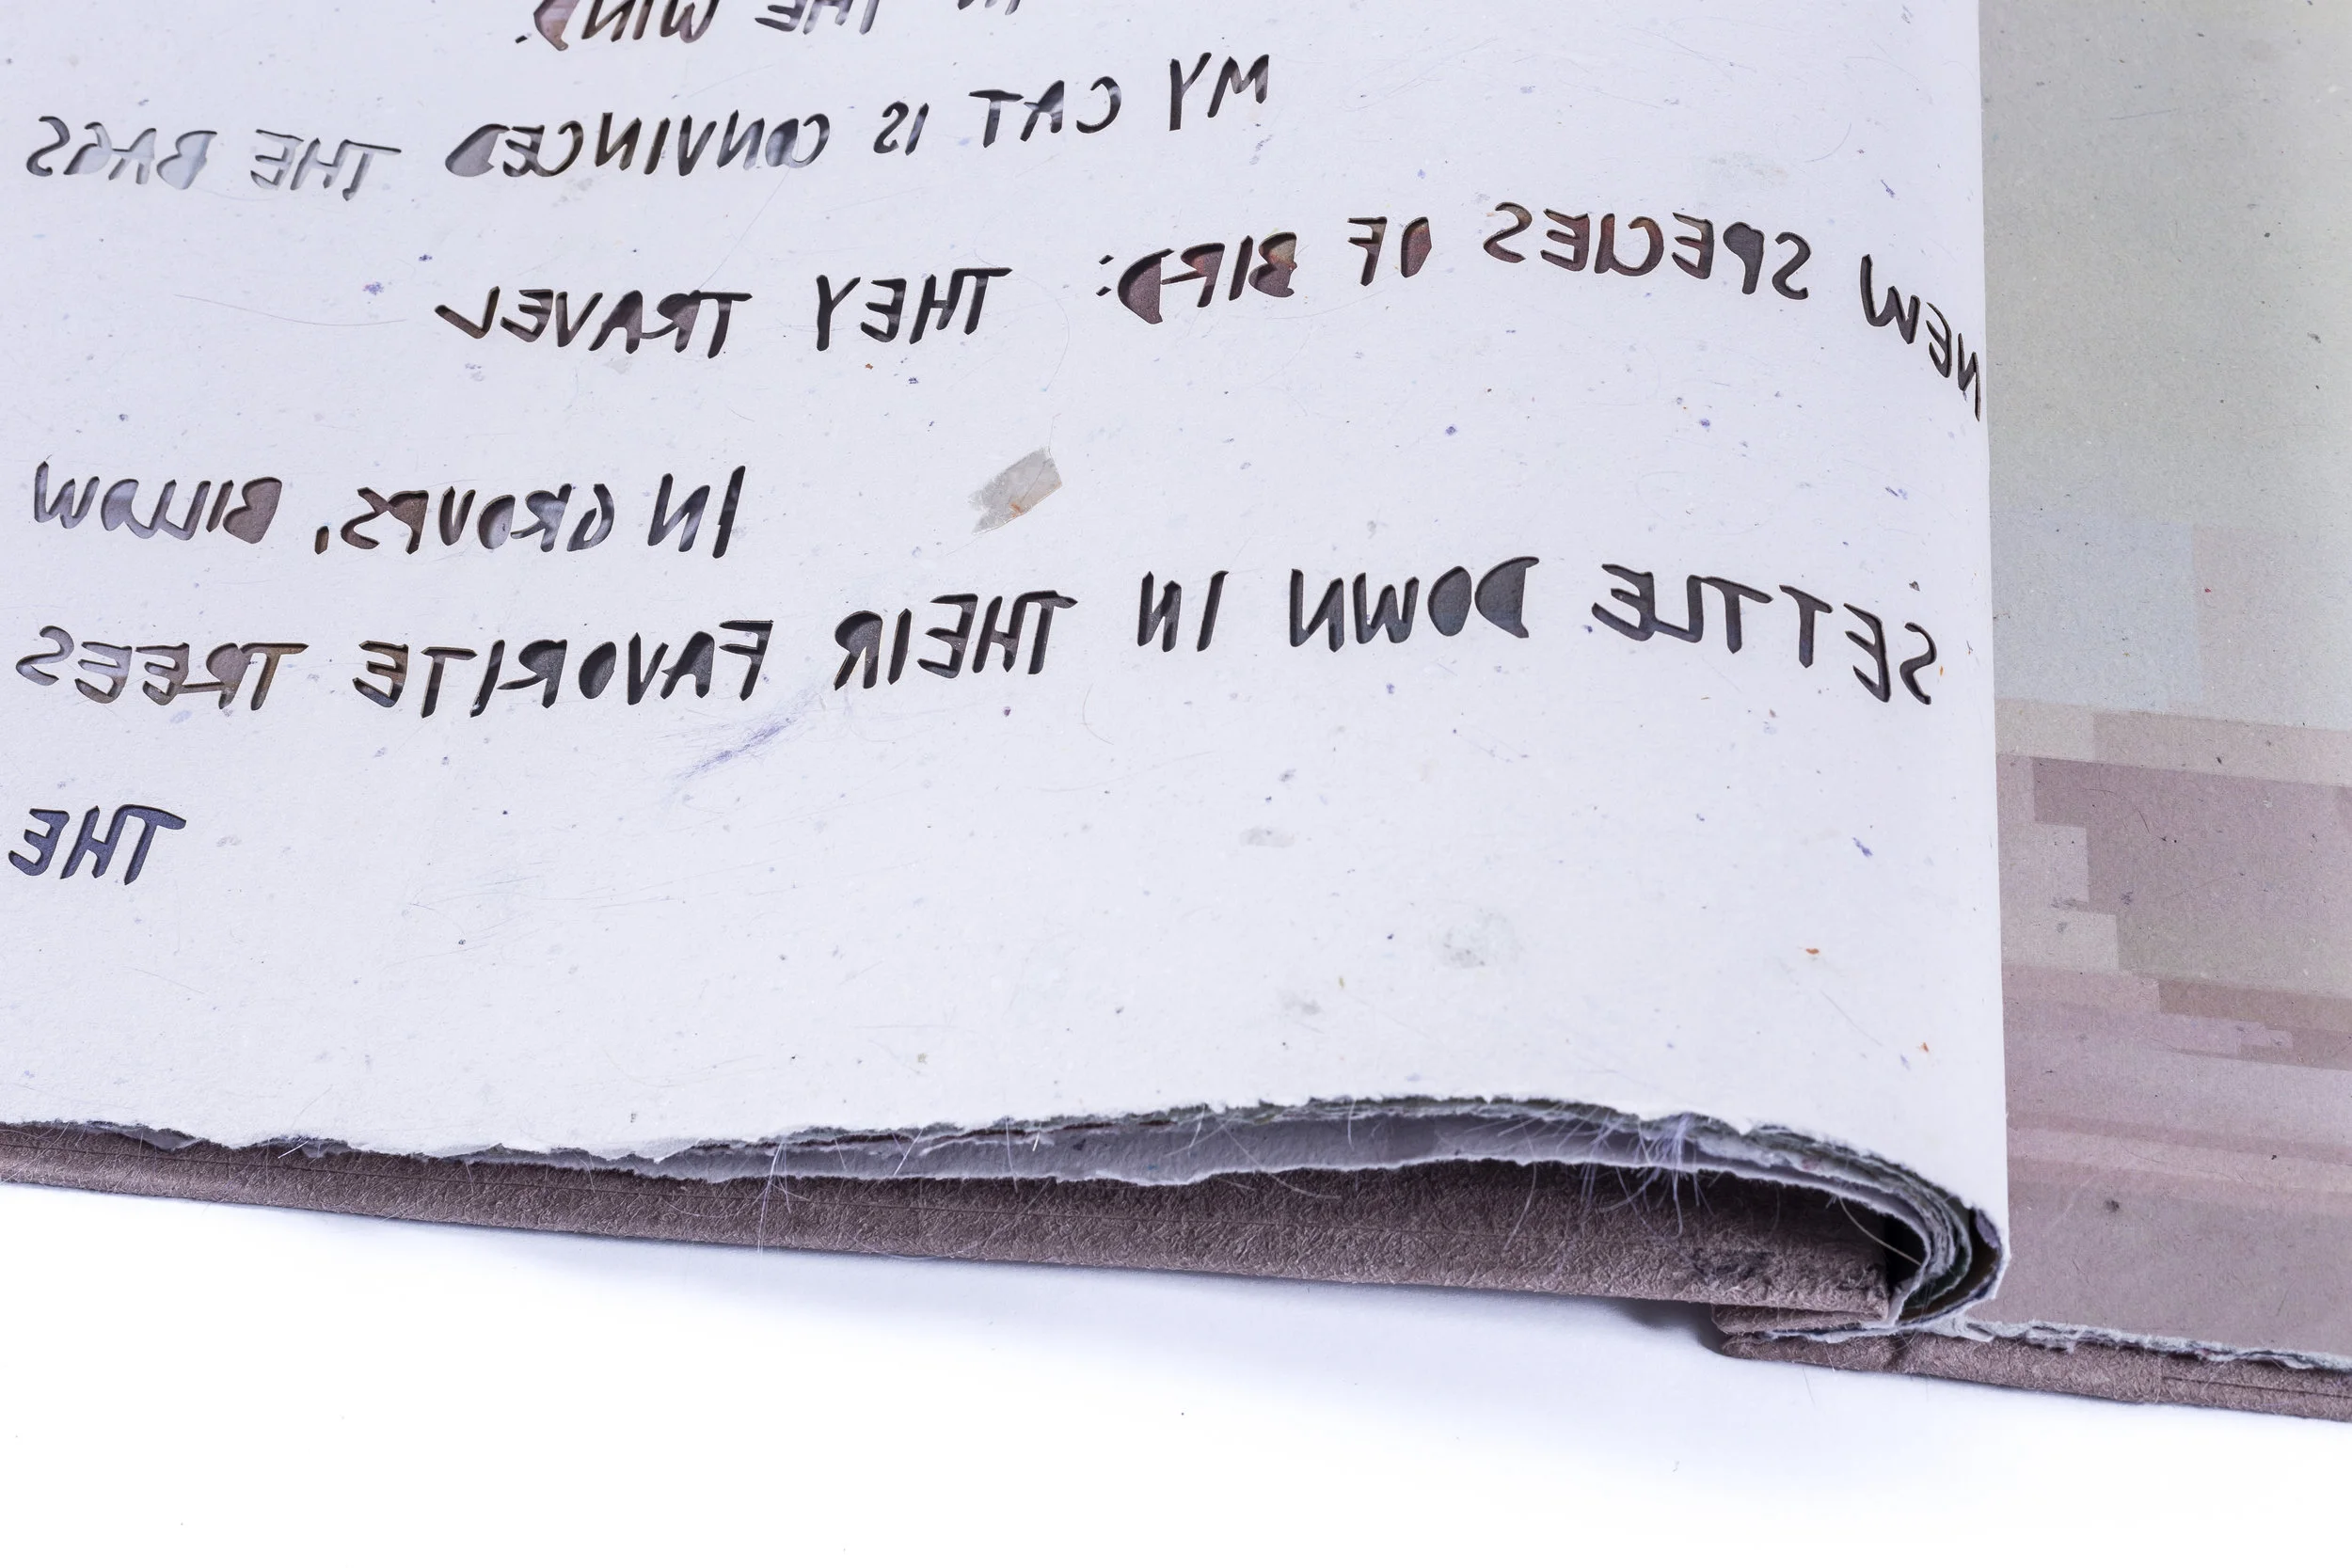 IN THE WIND.
MY CAT IS CONVINCED THE BAGS
NEW SPECIES OF BIRD: THEY TRAVEL
IN GROUPS, BILLOW
SETTLE DOWN IN THEIR FAVORITE TREES
THE